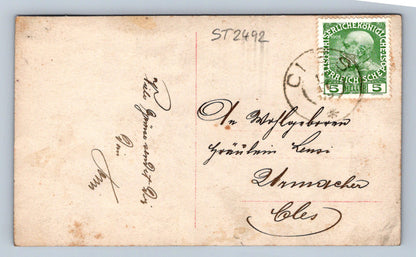 ST2492
KAISERLICHE KÖNIGLICHE
ÖSTERREICHISCHE
5 5
CLES
Viele Grüsse sendet Dir
Dein
An Wohlgeboren
Fräulein Lensi
Urmacher
Cles